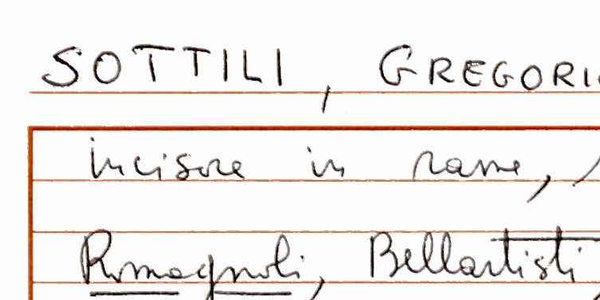 SOTTILI, GREGORIO
incisore in rame,
Romagnoli, Bellartisti